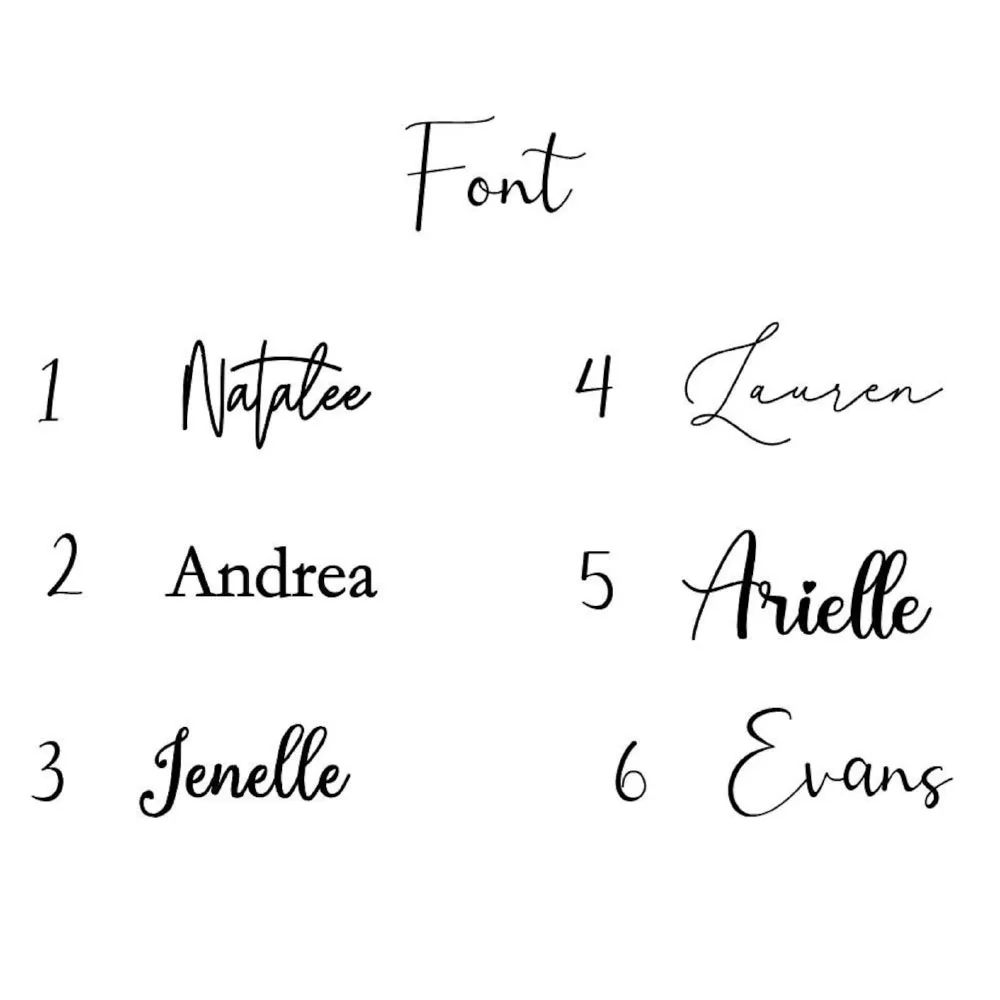 Font
1 Natalee
2 Andrea
3 Jenelle
4 Lauren
5 Arielle
6 Evans